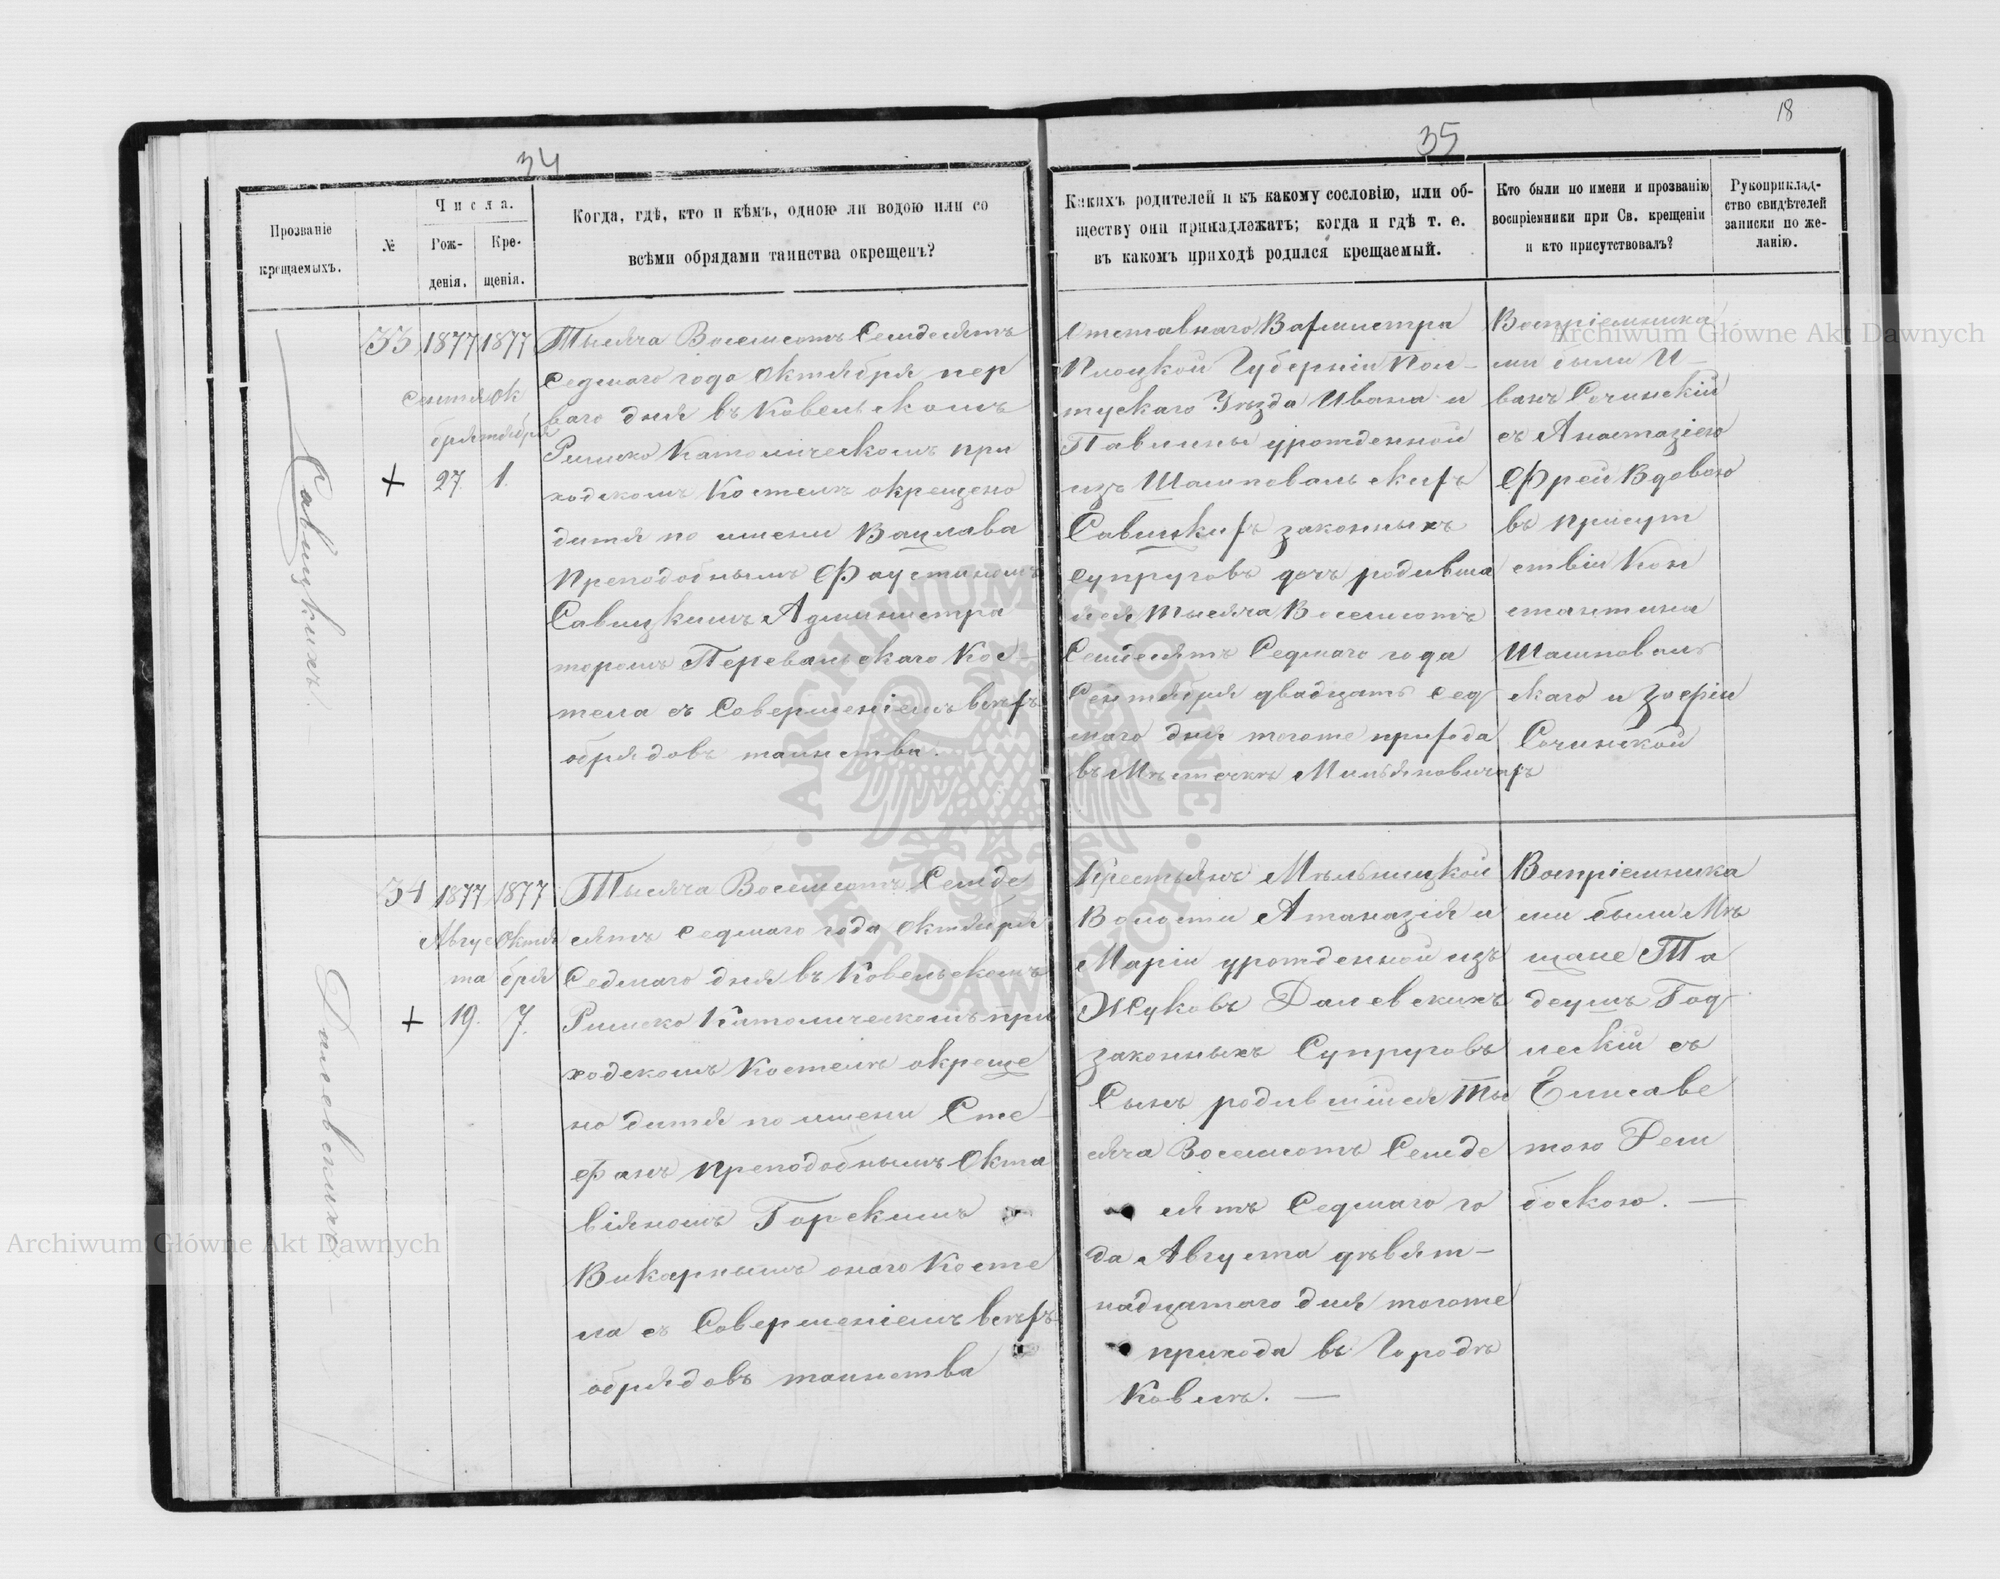 34
35
18
Прозваніе
крещаемыхъ.
№
Числа.
Рож-
денія.
Кре-
щенія.
Когда, гдѣ, кто и кѣмъ, одною ли водою или со
всѣми обрядами таинства окрещенъ?
Какихъ родителей и къ какому сословію, или об-
ществу они принадлежатъ; когда и гдѣ т. е.
въ какомъ приходѣ родился крещаемый.
Кто были по имени и прозванію
воспріемники при Св. крещеніи
и кто присутствовалъ?
Рукоприклад-
ство свидѣтелей
записки по же-
ланію.
Савицкихъ.
33
1877
Сентя
бря
27
1877
Ок
тября
1.
Тысяча Восемсотъ Семдесятъ
Седмаго года Октября пер
ваго дня въ Ковельскомъ
Римско Католическомъ при
ходскомъ Костелѣ окрещено
дитя по имени Вацлава
Преподобнымъ Фаустиномъ
Савицкимъ Администра
торомъ Перевальскаго Кос-
тела съ Совершеніемъ всѣхъ
обрядовъ таинства.
Отставнаго Вахмистра
Плоцкой Губерніи Пол-
тускаго Уѣзда Ивана и
Павлины урожденной
изъ Шашповальскихъ
Савицкихъ законныхъ
Супруговъ дочь родивша
яся тысяча Восемсотъ
Семдесятъ Седмаго года
Сентября двадцать сед
маго дня тогоже прихода
въ Мѣстечкѣ Мильяновичахъ
Воспріемника
ми были И-
ванъ Сочинскій
съ Анастазіею
Фрей Вдовою
въ присут
ствіи Кон
стантина
Шашповаль
скаго и Зофіи
Сочинской
Далевскихъ.
34
1877
Авгус
та
19.
1877
Октя
бря
7.
Тысяча Восемсотъ Семде
сятъ Седмаго года Октября
Седмаго дня въ Ковельскомъ
Римско Католическомъ при
ходскомъ Костелѣ окреще
но дитя по имени Сте-
фанъ Преподобнымъ Окта
віяномъ Горскимъ
Викарнымъ онаго Косте
ла съ Совершеніемъ всѣхъ
обрядовъ таинства
Крестьянъ Мѣльницкой
Волости Атаназія и
Маріи урожденной изъ
Жуковъ Далевскихъ
законныхъ Супруговъ
Сынъ родившійся Ты
сяча Восемсотъ Семде
сятъ Седмаго го
да Августа девят-
надцатаго дня тогоже
прихода въ Городѣ
Ковелѣ.
Воспріемника
ми были Мѣ
щане Та
деушъ Год
лескій съ
Елисаве
тою Дем
боскою.
Archiwum Główne Akt Dawnych
Archiwum Główne Akt Dawnych
· ARCHIWUM GŁÓWNE · AKT DAWNYCH ·